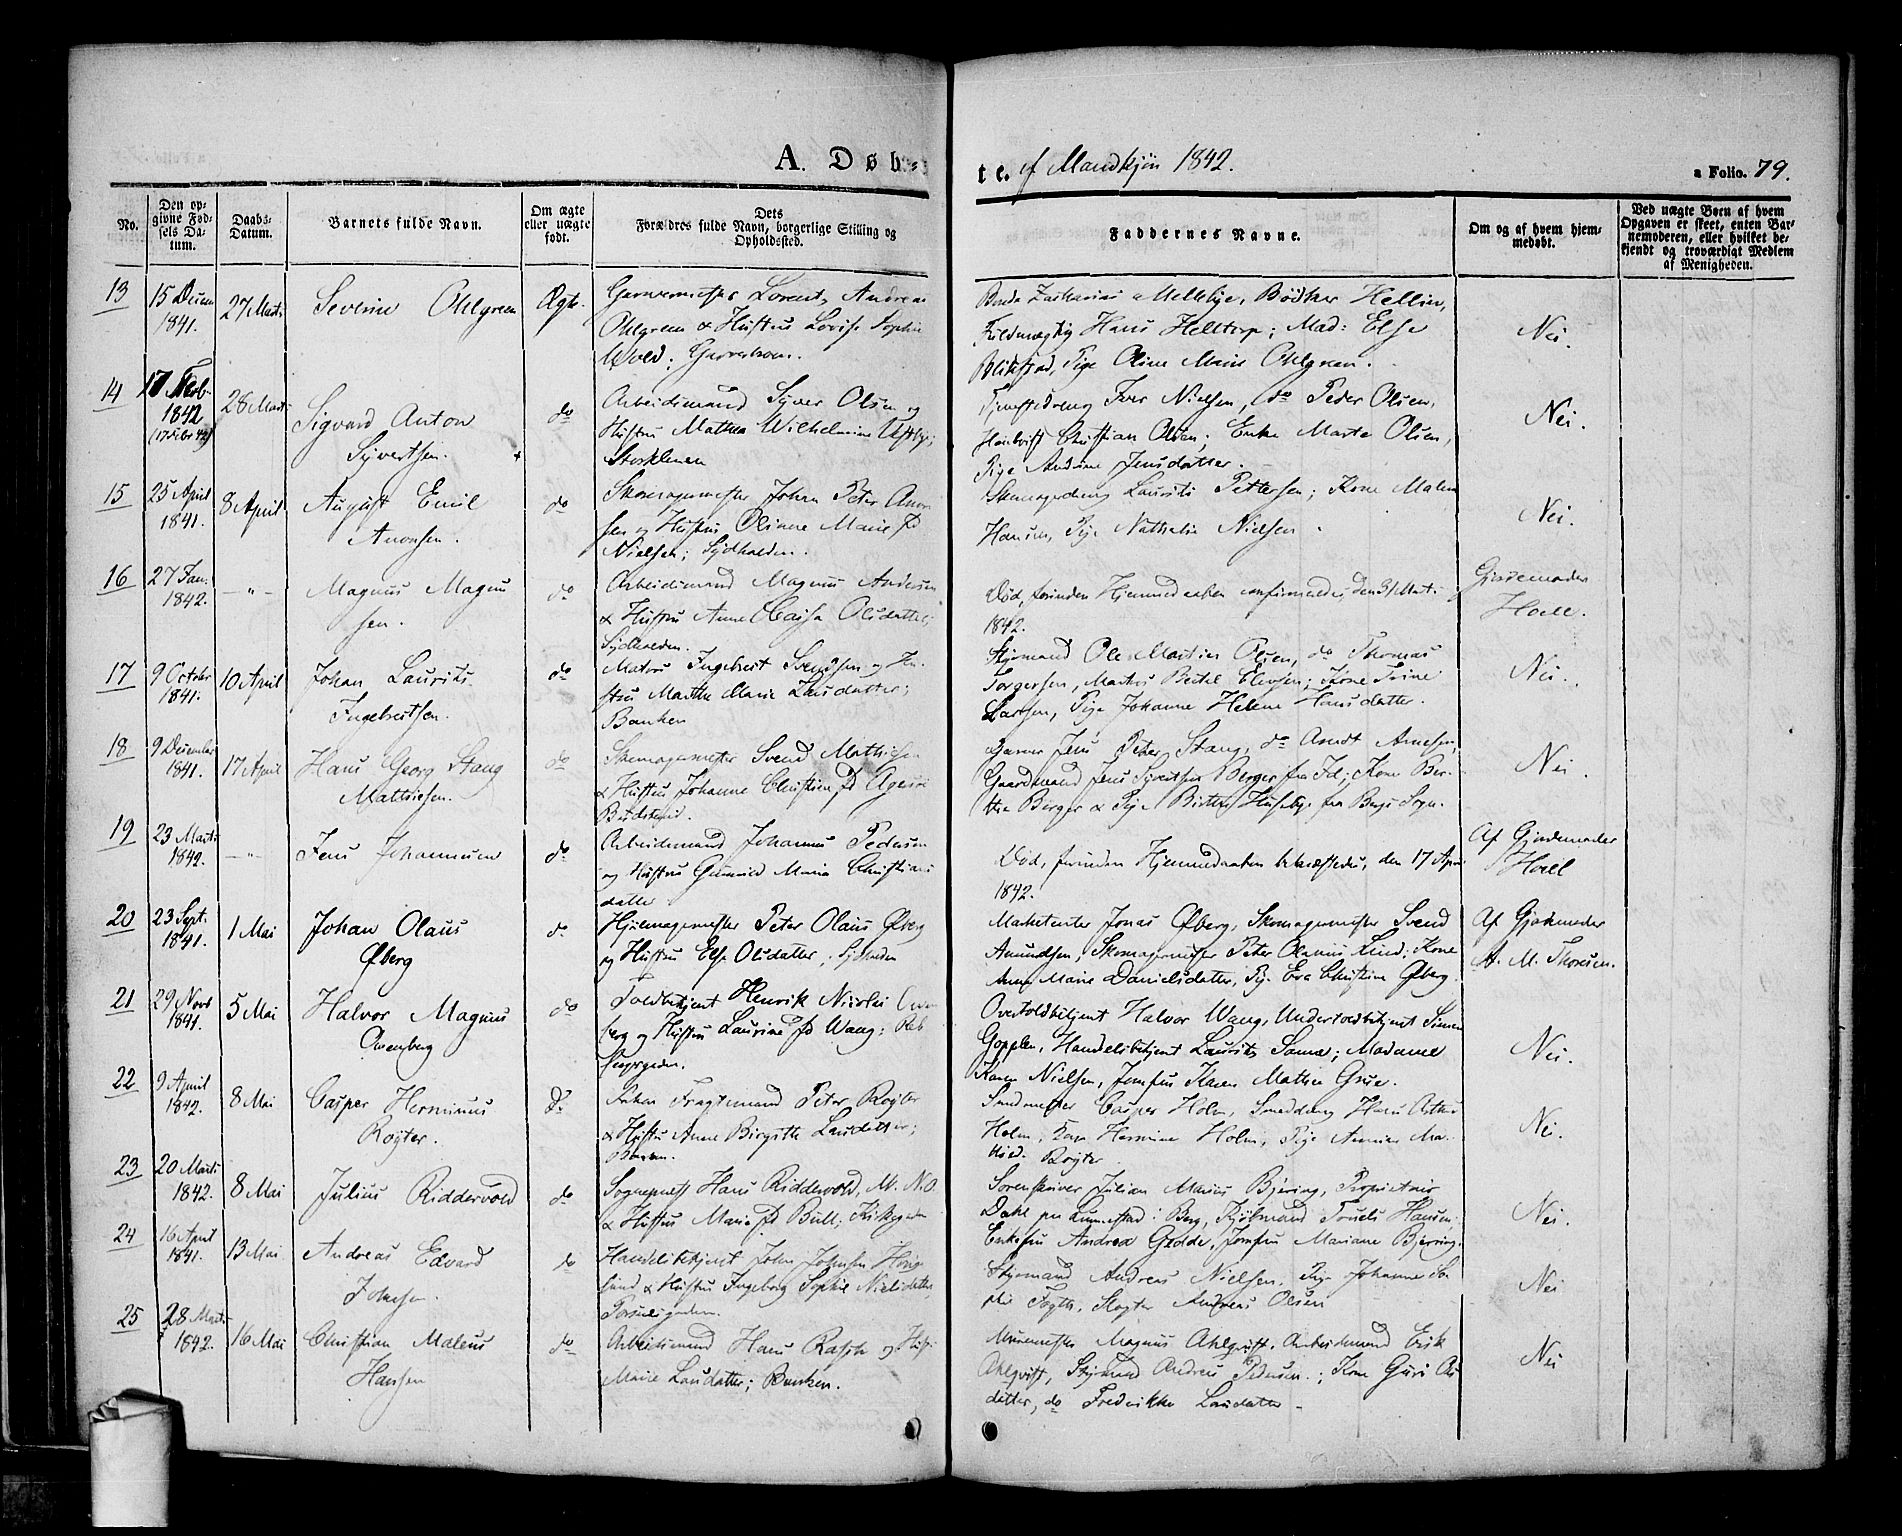 A. Døb-
te. af Mandkjøn 1842.
a Folio. 79.
No.
Den op-
givne Fød-
sels Da-
tum.
Daabs-
Datum.
Barnets fulde Navn.
Om ægte
eller uægte
født.
Dets
Forældres fulde Navn, borgerlige Stilling og
Opholdssted.
Faddernes Navne.
Om og af hvem hjem-
medøbt.
Ved uægte Børn af hvem
Opgaven er skeet, enten Bar-
nemoderen, eller hvilket be-
kjendt og troværdigt Medlem
af Menigheden.
13
15 Decem
1841.
27 Marts
Severin Ohlgreen
Ægte.
Garvermester Lorents Andreas
Ohlgreen & Hustru Lovise Sophie
Wold.
Zacharias Bødker
Fuldmægtig Hans Helltorp; Mad: Else
Pige Oline Marie Ohlgreen.
Nei.
14
17 Feb.
1842
(17 Febr 42)
28 Marts
Sigvard Anton
Syvertsen.
do
Arbeidsmand Syver Olsen og
Hustru Mathea Wilhelmine
Tjenstedreng Iver Nielsen, do Peder Olsen,
Christian Olsen; Enke Marte Olsen,
Pige Andrine Jensdatter.
Nei.
15
25 April
1841.
8 April
August Emil
Aronsen.
do
Skomagermester Johan Peter Aron-
sen og Hustru Olinne Marie fd
Nielsen; Sydhalden.
Skomagerdreng Laurits Pettersen; Kone Malen
Hansen, Pige Nathalie Nielsen
Nei.
16
27 Jan.
1842.
— " —
Magnus Magnu
sen.
do
Arbeidsmand Magnus Andersen
& Hustru Anne Caisa Olsdatter;
Sydhalden.
Død, forinden Hjemmedaaben confirmeredes, den 31 Marts
1842.
Gjordemoder
Hoell.
17
9 October
1841.
10 April
Johan Laurits
Ingebretsen.
do
Matros Ingebret Svendsen og Hu-
stru Marthe Marie Larsdatter;
Banken
Styrmand Ole Martin Olsen, do Thomas
Torgersen, Matros Bertel Elevsen; Kone Trine
Larsen, Pige Johanne Helene Hansdatter.
Nei.
18
9 December
1841.
17 April
Hans Georg Stang
Mathiesen.
do
Skomagermester Svend Mathisen
& Hustru Johanne Christine fd
Garver Jens Peter Stang, do Arndt Arnesen,
Gaardmand Jens Syvertsen Berger fra Id; Kone Ber-
the Berger & Pige fra Bergs Sogn.
Nei.
19
23 Marts
1842.
— " —
Jens Johannesen
do
Arbeidsmand Johannes Pedersen
og Hustru Gunnild Marie Christians
datter
Død, forinden Hjemmedaaben bekræftedes, den 17 April
1842.
Af Gjordemoder
Hoell
20
23 Sept.
1841.
1 Mai
Johan Olaus
Øberg
do
Hjulmagermester Peter Olaus Øberg
og Hustru Else Olsdatter; Sydhalden
Marketenter Jonas Øberg, Skomagermester Svend
Amundsen, Skomagermester Peter Olanus Lund; Kone
Anne Marie Danielsdatter, Pige Eva Christine Øberg.
Af Gjordemoder
A. M. Thoresen.
21
29 Novb
1841.
5 Mai
Halvor Magnus
Owenberg
do
Toldbetjent Henrik Nicolai Owen
berg og Hustru Laurine fd Waag;
Overtoldbetjent Halvor Waag, Undertoldbetjent Simen
Gopplen, Handelsbetjent Laurits Sanne; Madame
Karen Nielsen, Jomfru Karen Mathea Grüe.
Nei.
22
9 April
1842.
8 Mai
Casper Herminus
Røyter.
Do
Fragtemand Peter Røyter
& Hustru Anne Birgitte Larsdatter;
Banken.
Smedmester Casper Holm, Smeddreng Hans
Holm, Kone Hermine Holm, Pige
Røyter
Nei.
23
20 Marts
1842.
8 Mai
Julius Riddervold
do
Sogneprest Hans Riddervold, R. N. O.
& Hustru Marie fd Bull; Kirkegaden
Sorenskriver Julian Marius Bjering, Proprietair
Dahl paa i Berg, Kjøbmand Hansen;
Enkefru Andrea Gedde, Jomfru Mariane Bjerring.
Nei.
24
16 April
1841.
13 Mai
Andreas Edvard
Johnsen.
do
Handelsbetjent John Johnsen Høng-
lund & Hustru Ingeborg Sophie Nielsdatter,
Styrmand Andreas Nielsen. Pige Johanne So-
phie Fogth, Slagter Andreas Olsen
Nei
25
28 Marts
1842.
16 Mai
Christian Maleus
Hansen
do
Arbeidsmand Hans Rasch og Hust.
Marie Larsdatter; Banken.
Muurmester Magnus Ahlqvist, Arbeidsmand Erik
Ahlqvist, Styrmand Andreas Pedersen; Kone Guri Ols
datter, do Fredrikke Larsdatter.
Nei